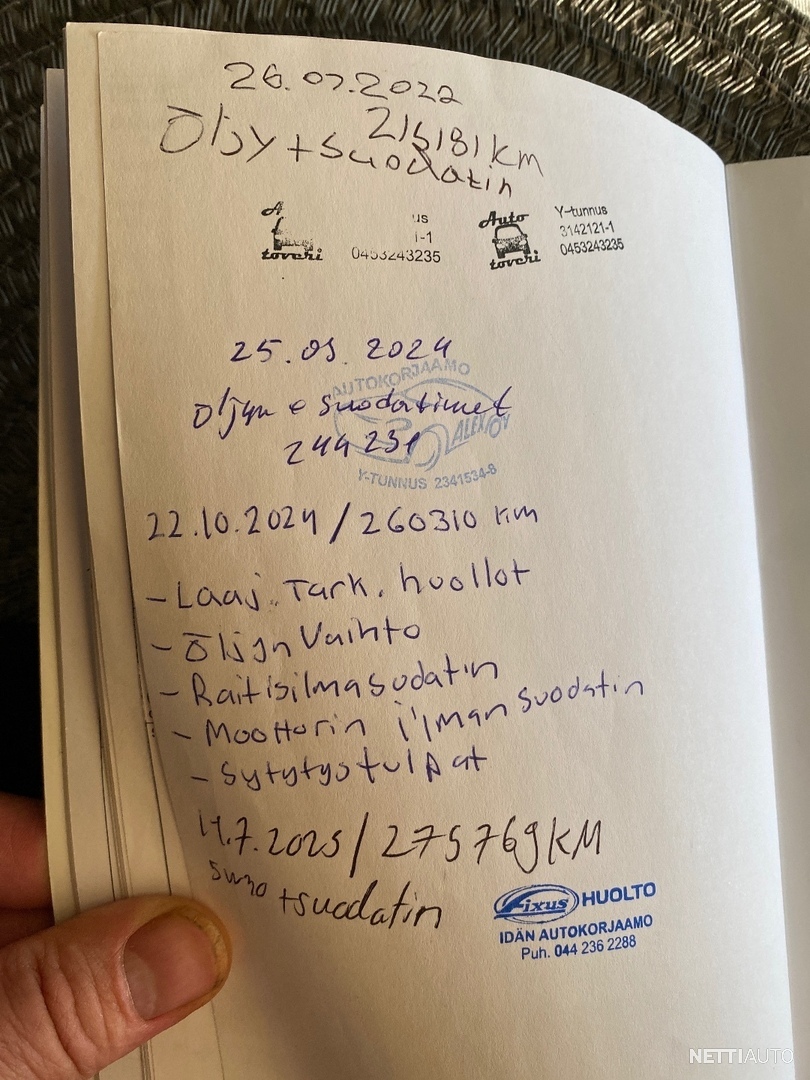 26.07.2022
215181 km
Öljy + suodatin
A
us
toveri
i-1
0453243235
Auto
toveri
Y-tunnus
3142121-1
0453243235
25.09.2024
AUTOKORJAAMO
Öljyn e suodatimet
ALEX OY
244231
Y-TUNNUS 2341534-8
22.10.2024 / 260310 km
- Laaj. Tark. huollot
- Öljyn Vaihto
- Raitisilmasuodatin
- Moottorin ilman suodatin
- Sytytystulpat
14.7.2025 / 275769 KM
+suodatin
Fixus HUOLTO
IDÄN AUTOKORJAAMO
Puh. 044 236 2288
NETTIAUTO